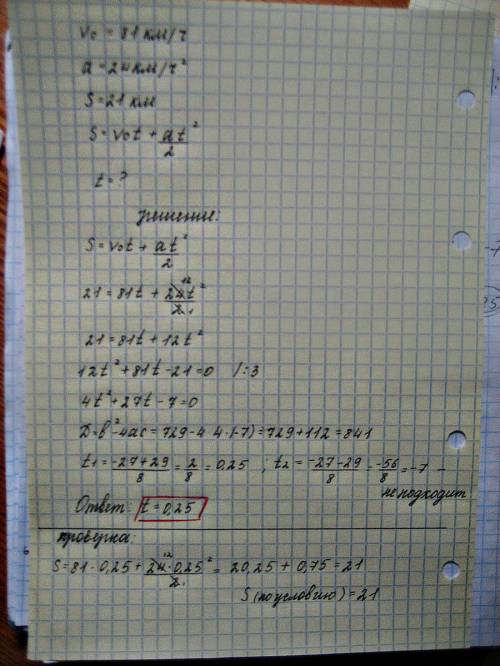 V₀ = 81 км/ч
a = 24 км/ч²
S = 21 км
S = V₀t + at²/2
t = ?
решение:
S = V₀t + at²/2
21 = 81t + 24t²/2 12 1
21 = 81t + 12t²
12t² + 81t - 21 = 0 /:3
4t² + 27t - 7 = 0
D = b² - 4ac = 729 - 4·4·(-7) = 729 + 112 = 841
t₁ = -27+29/8 = 2/8 = 0,25 ; t₂ = -27-29/8 = -56/8 = -7 -
не подходит
Ответ: t = 0,25
проверка:
S = 81·0,25 + 24·0,25²/2 12 1 = 20,25 + 0,75 = 21
S (по условию) = 21